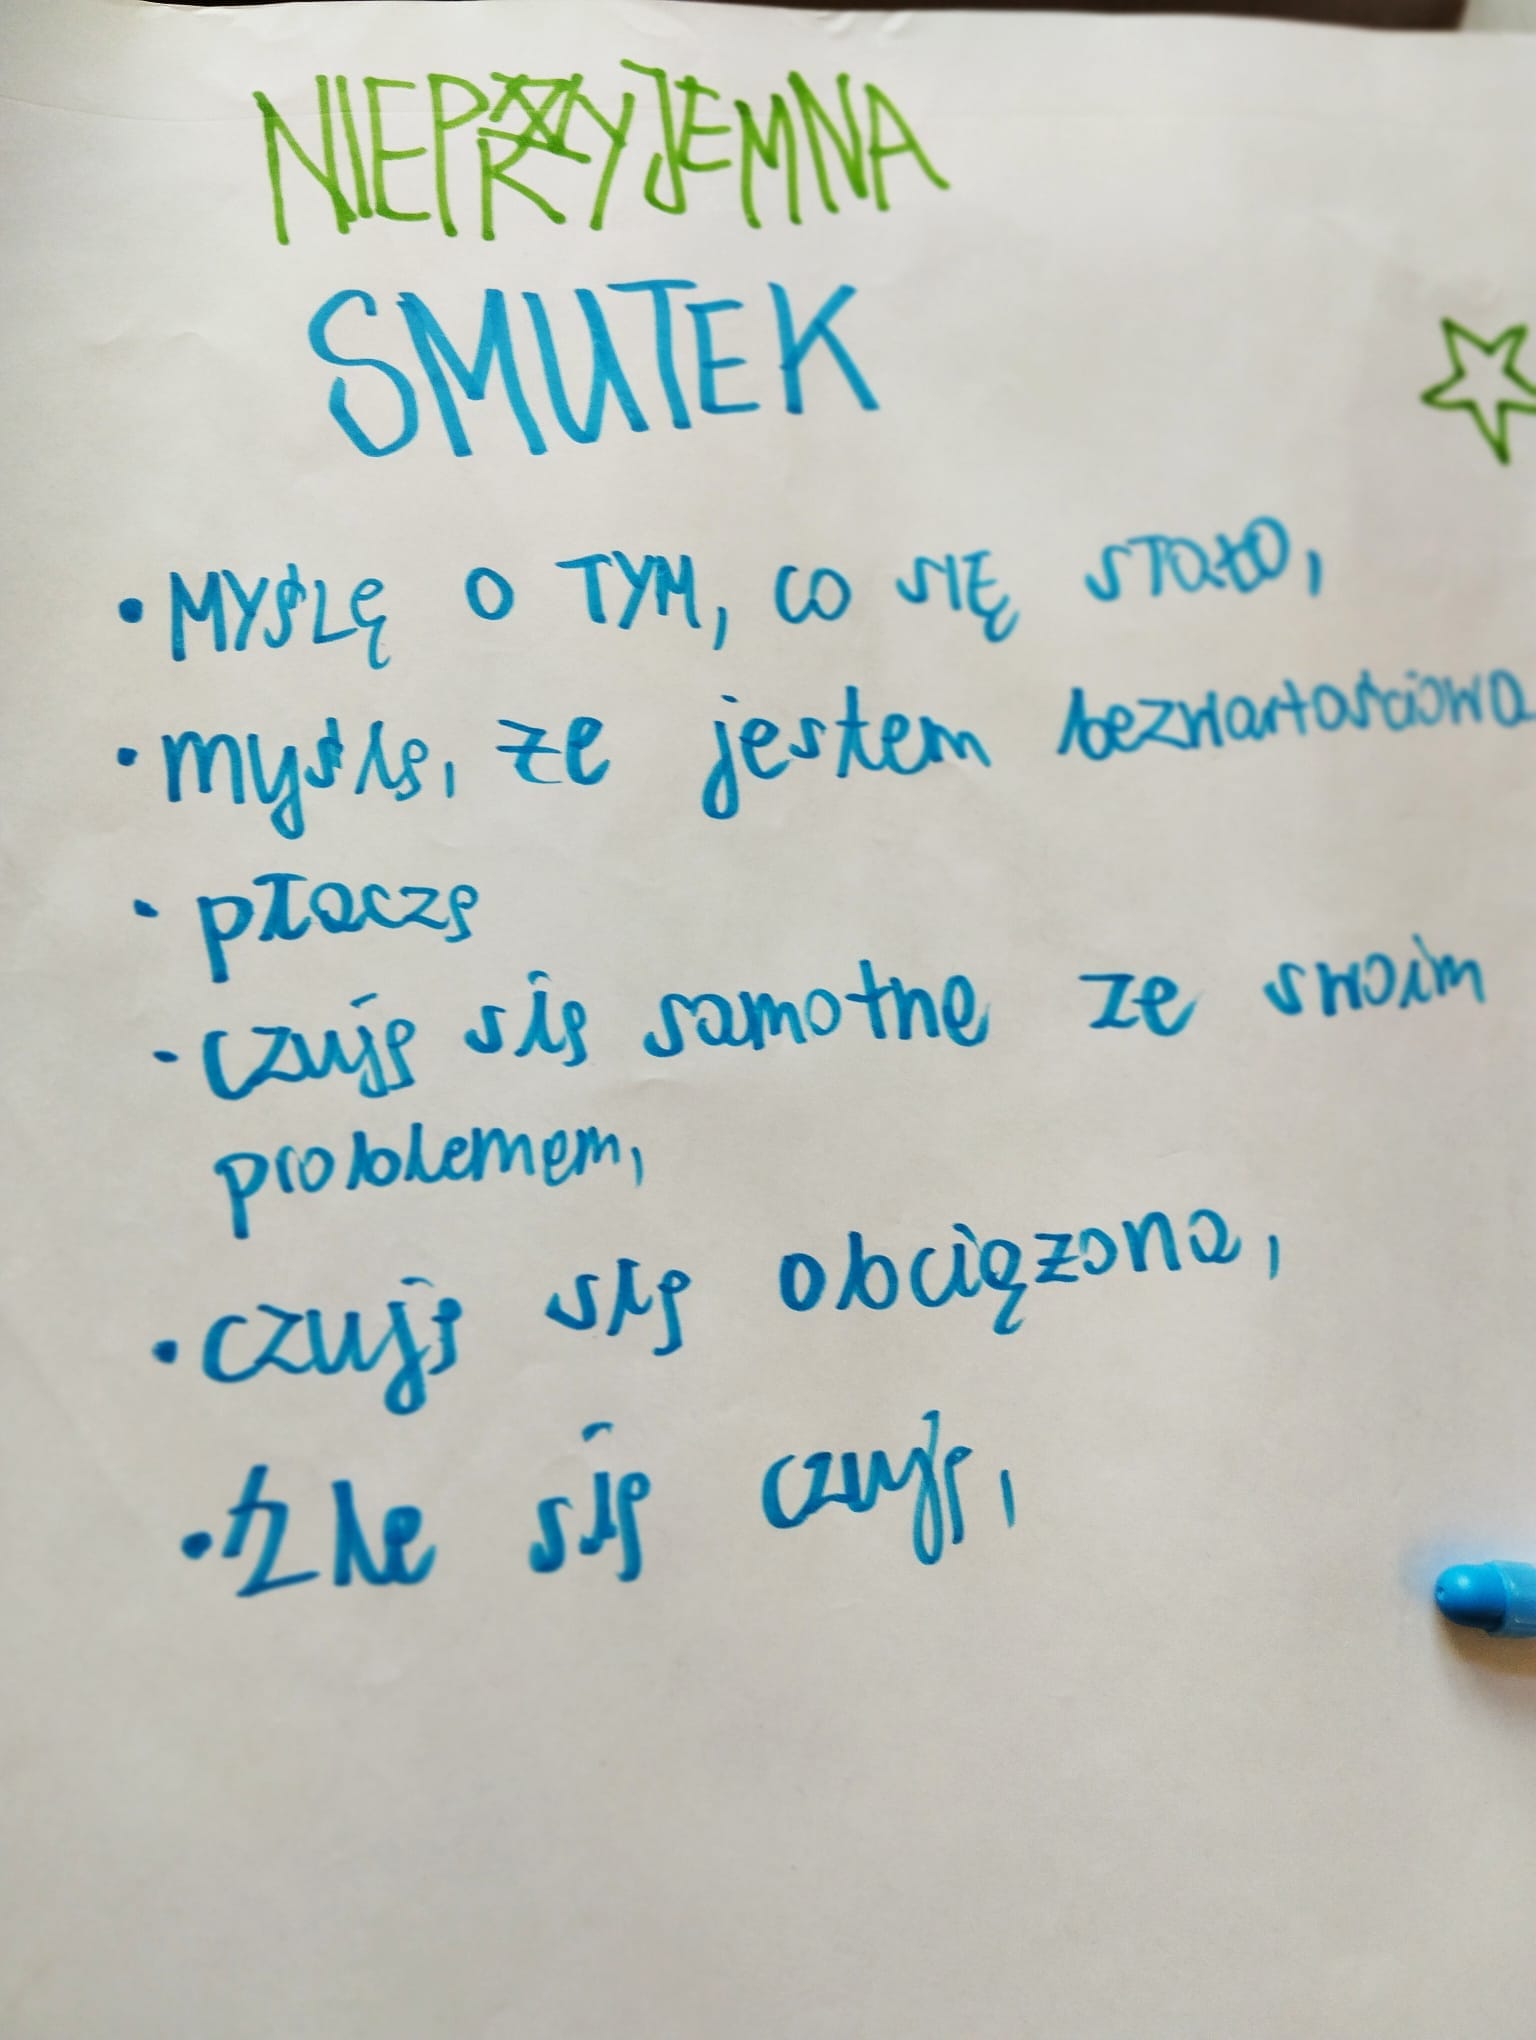 NIEPRZYJEMNA
SMUTEK
• MYŚLĘ O TYM, CO SIĘ STAŁO,
• myślę, że jestem bezwartościowa
• płaczę
• czuję się samotne ze swoim
problemem,
• czuję się obciążona,
• źle się czuję,